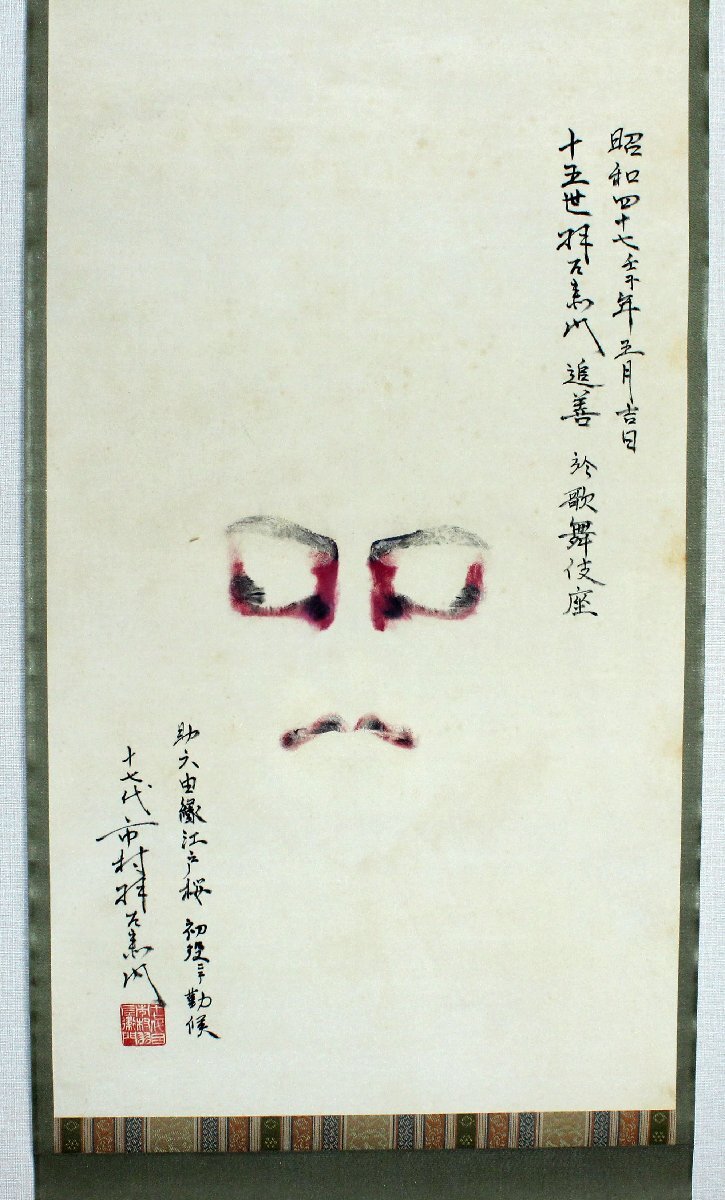 昭和四十七壬子年五月吉日
十五世羽左衛門 追善 於歌舞伎座
助六由縁江戸桜 初役ニテ勤候
十七代市村羽左衛門
十七代目
市村羽
左衛門